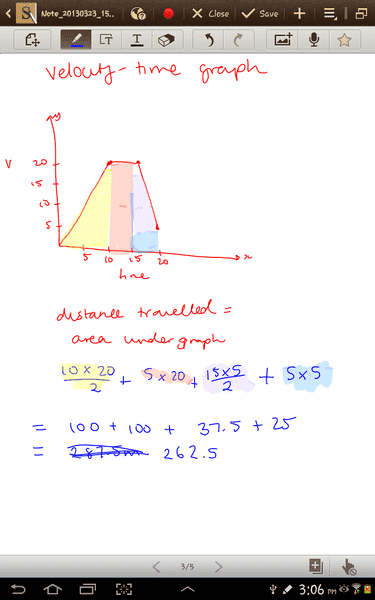 Note_20130323_15..
Close
Save
velocity-time graph
y
v
20
15
10
5
5 10 15 20
x
time
distance travelled =
area under graph
10 x 20 / 2 + 5 x 20 + 15 x 5 / 2 + 5 x 5
= 100 + 100 + 37.5 + 25
= 287.5m 262.5
3/5
3:06 PM